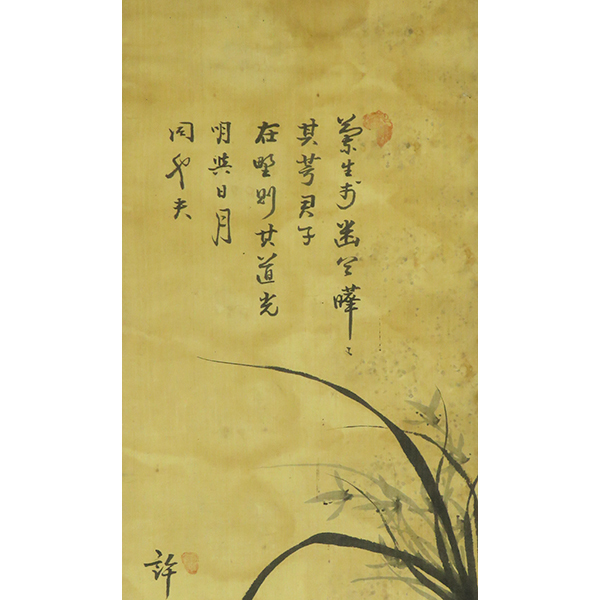 蘭生於幽谷曄〻
其萼君子
在野則其道光
明與日月
同也夫
許